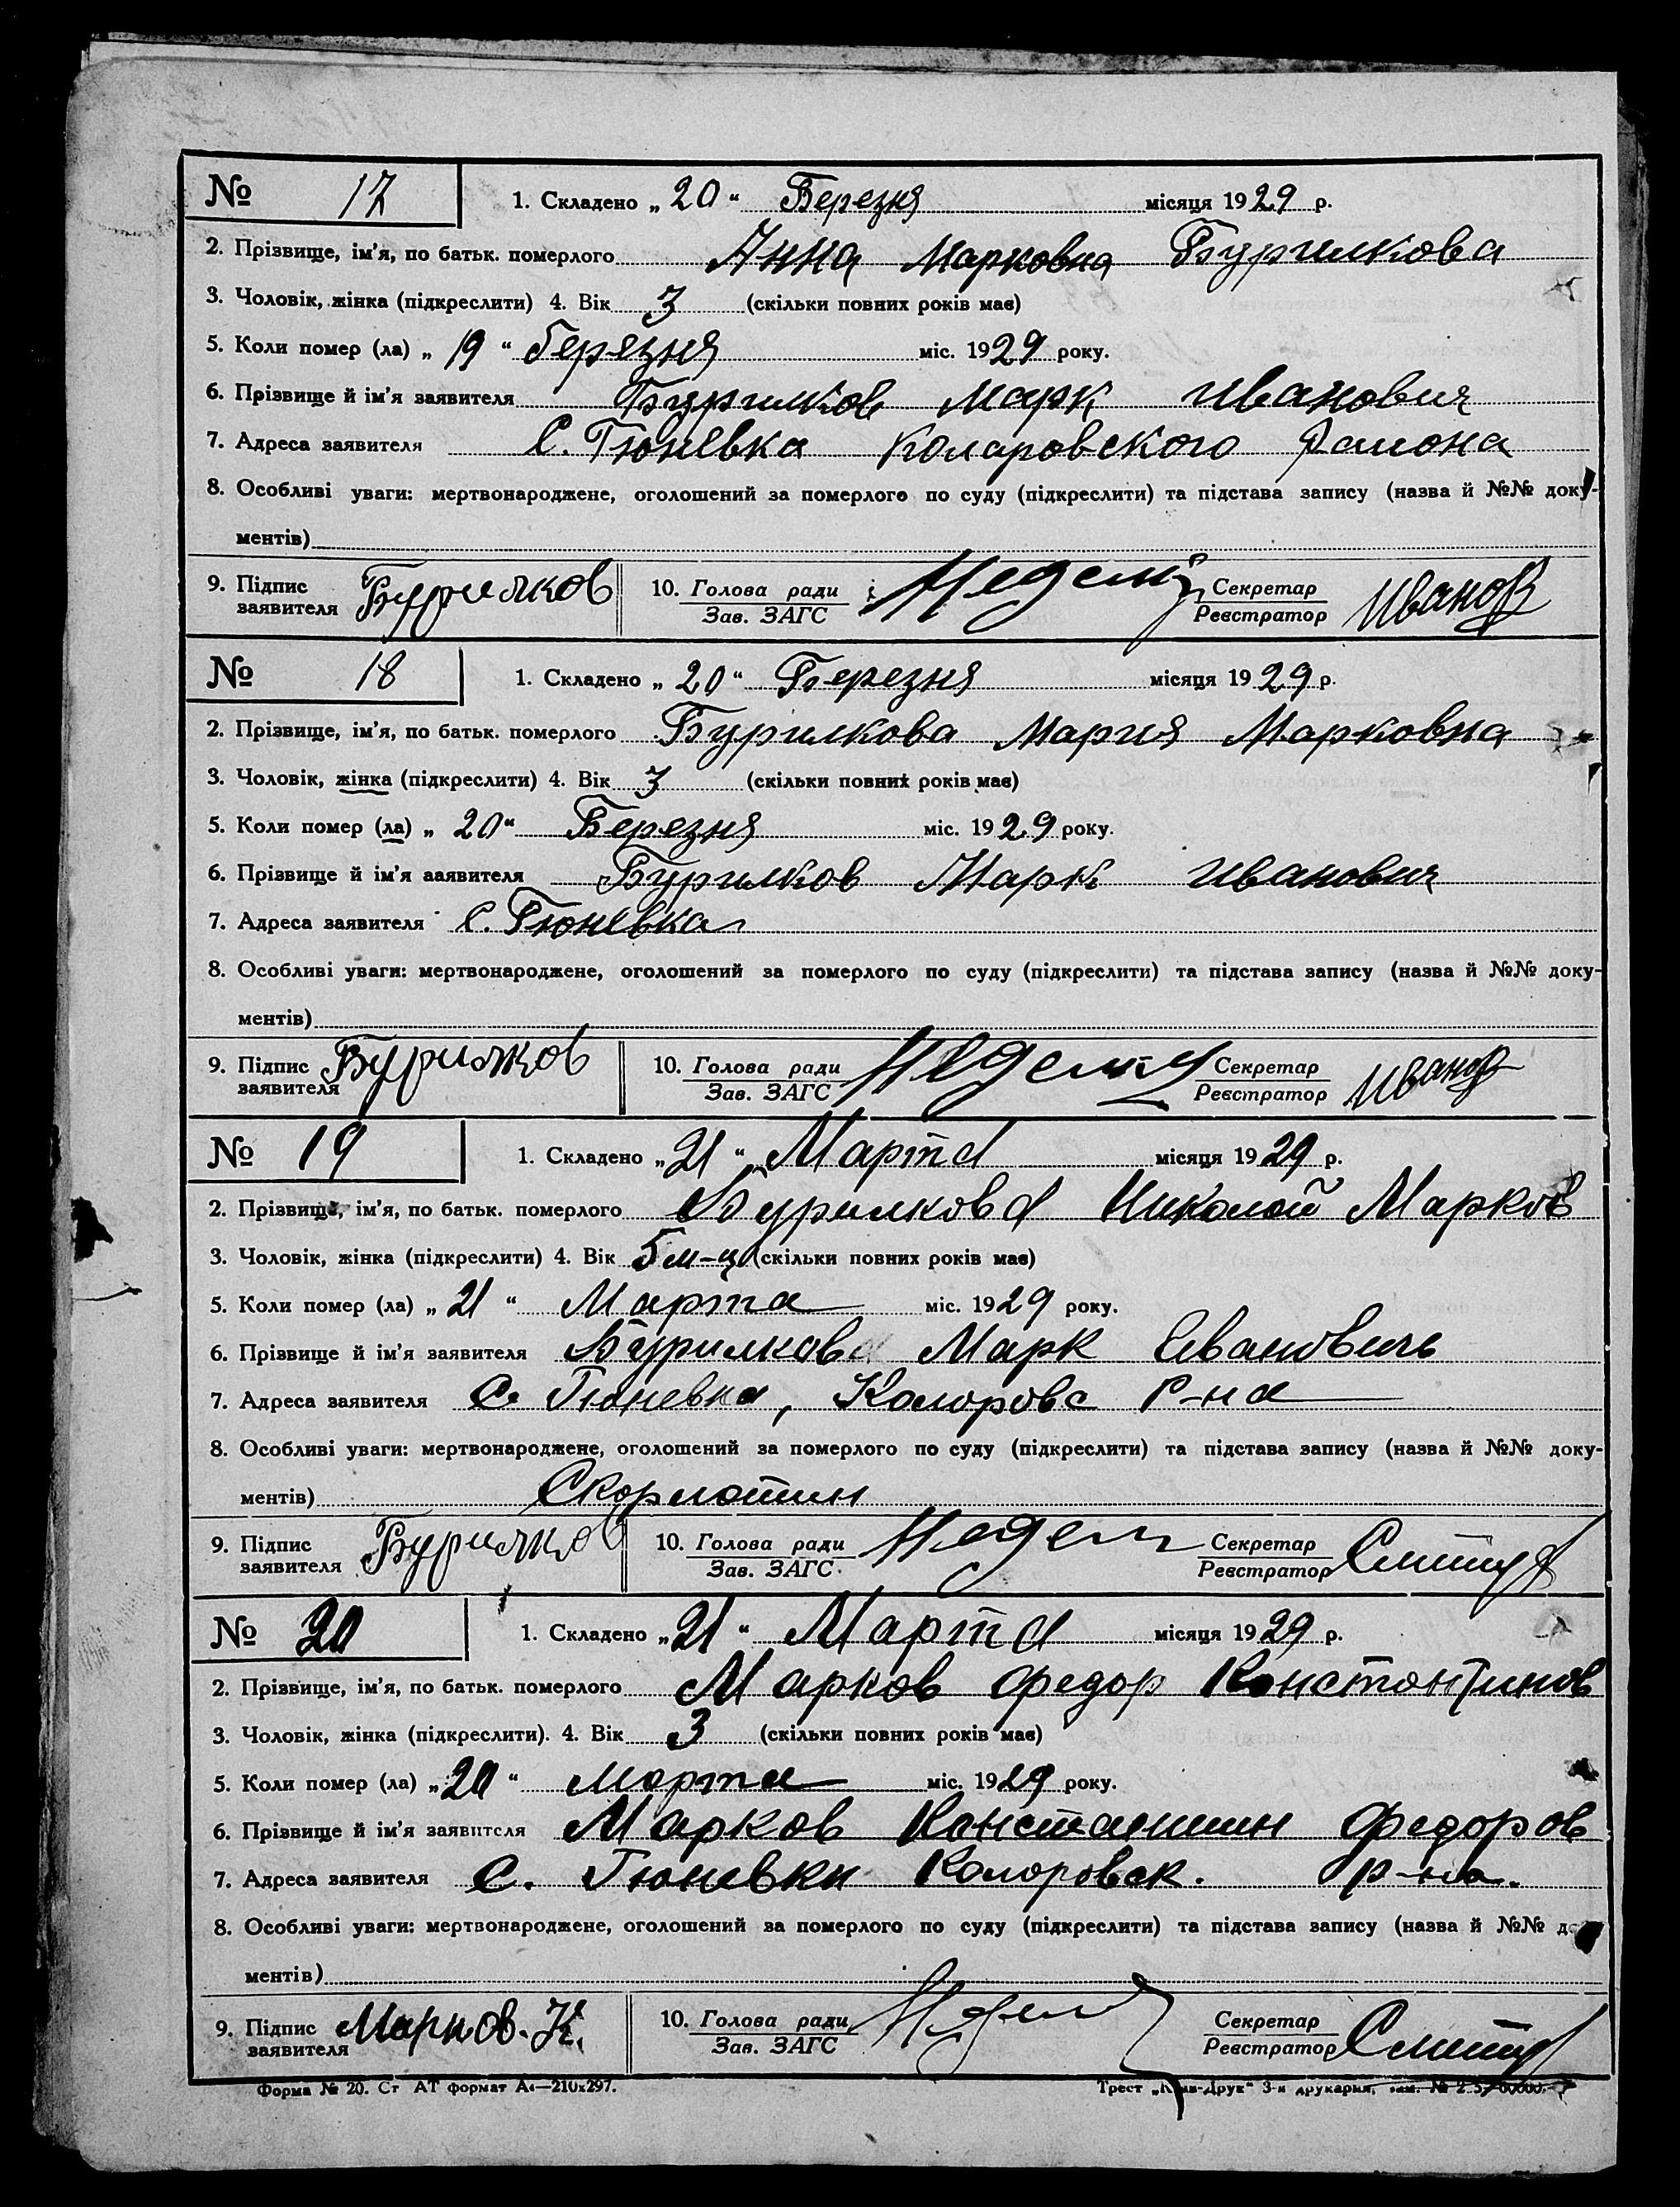 № 17 1. Складено „ 20 “ Березня місяця 1929 р.
2. Прізвище, ім’я, по батьк. померлого Анна Марковна Бурилкова
3. Чоловік, жінка (підкреслити) 4. Вік 3 (скільки повних років має)
5. Коли помер (ла) „ 19 “ березня міс. 1929 року.
6. Прізвище й ім’я заявителя Бурилков Марк Иванович
7. Адреса заявителя С. Гюневка Коларовского Района
8. Особливі уваги: мертвонароджене, оголошений за померлого по суду (підкреслити) та підстава запису (назва й №№ доку-
ментів)
9. Підпис заявителя Бурилков 10. Голова ради Секретар Иванов
Зав. ЗАГС Реєстратор
№ 18 1. Складено „ 20 “ Березня місяця 1929 р.
2. Прізвище, ім’я, по батьк. померлого Бурилкова Мария Марковна
3. Чоловік, жінка (підкреслити) 4. Вік 3 (скільки повних років має)
5. Коли помер (ла) „ 20 “ Березня міс. 1929 року.
6. Прізвище й ім’я заявителя Бурилков Марк Иванович
7. Адреса заявителя С. Гюневка
8. Особливі уваги: мертвонароджене, оголошений за померлого по суду (підкреслити) та підстава запису (назва й №№ доку-
ментів)
9. Підпис заявителя Бурилков 10. Голова ради Секретар Иванов
Зав. ЗАГС Реєстратор
№ 19 1. Складено „ 21 “ Марта місяця 1929 р.
2. Прізвище, ім’я, по батьк. померлого Бурилкова Николай Марков
3. Чоловік, жінка (підкреслити) 4. Вік 5 м-ц (скільки повних років має)
5. Коли помер (ла) „ 21 “ Марта міс. 1929 року.
6. Прізвище й ім’я заявителя Бурилкова Марк Ивановичь
7. Адреса заявителя С. Гюневка, Коларовс Р-на
8. Особливі уваги: мертвонароджене, оголошений за померлого по суду (підкреслити) та підстава запису (назва й №№ доку-
ментів) Скорлотин
9. Підпис заявителя Бурилков 10. Голова ради Секретар
Зав. ЗАГС Реєстратор
№ 20 1. Складено „ 21 “ Марта місяця 1929 р.
2. Прізвище, ім’я, по батьк. померлого Марков Федор Константинов
3. Чоловік, жінка (підкреслити). 4. Вік 3 (скільки повних років має)
5. Коли помер (ла) „ 20 “ Марта міс. 1929 року.
6. Прізвище й ім’я заявителя Марков Константин Федоров
7. Адреса заявителя С. Гюневки Коларовск. р-на.
8. Особливі уваги: мертвонароджене, оголошений за померлого по суду (підкреслити) та підстава запису (назва й №№
ментів)
9. Підпис заявителя Марков. К. 10. Голова ради Секретар
Зав. ЗАГС Реєстратор
Форма № 20. Ст АТ формат А4—210х297. Трест „Київ-Друк“ 3-я друкарня,